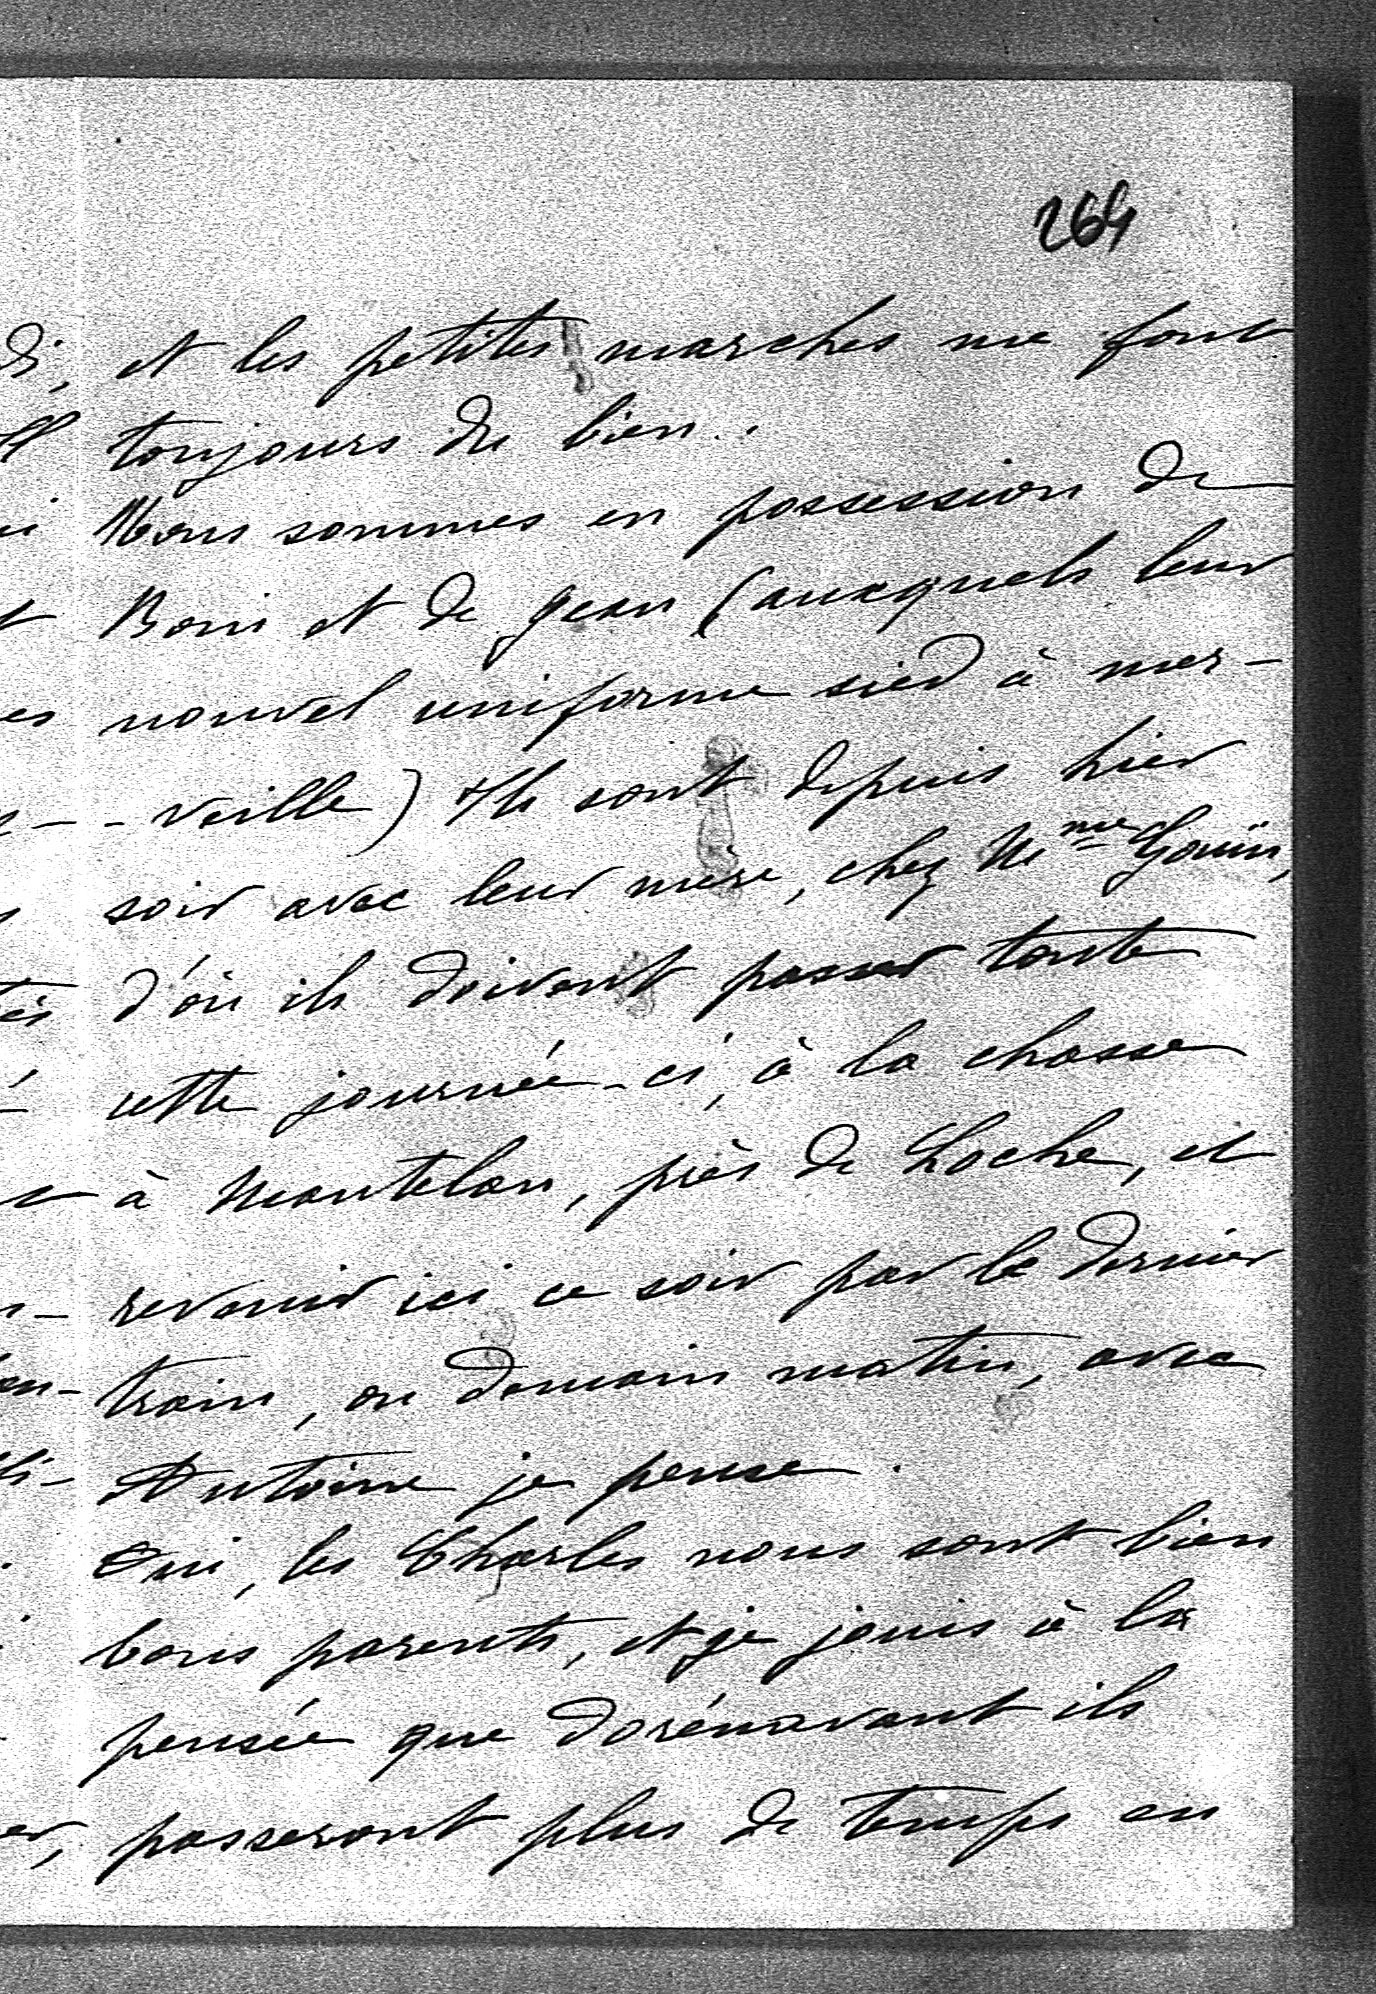 264
et les petites marches me font
toujours du bien.
Nous sommes en possession de
Boni et de Jean (auxquels leur
nouvel uniforme sied à mer-
-veille) Ils sont depuis hier
soir avec leur mère, chez Mme Goüin,
d'où ils doivent passer toute
cette journée-ci, à la chasse
à Mantelan, près de Loche, et
revenir ici ce soir par le dernier
train, ou demain matin, avec
Antoine je pense.
Oui, les Charles nous sont bien
bons parents, et je jouis à la
pensée que dorénavant ils
passeront plus de temps en